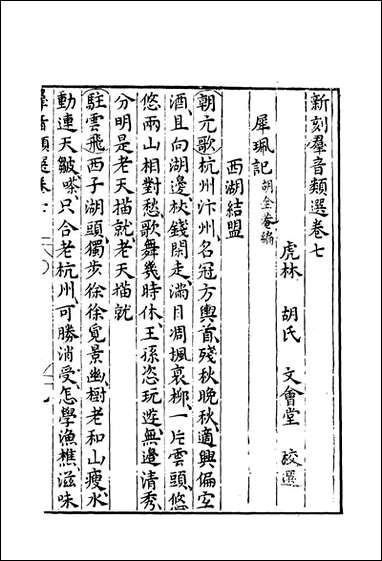 新刻羣音類選卷七
虎林 胡氏 文會堂 校選
犀珮記 胡全菴編
西湖結盟
朝元歌杭州汴州、名冠方輿首、殘秋晚秋、適興偏宐
酒、且向湖邊、杖錢閑走、滿目凋楓衰柳、一片雲頭、悠
悠兩山相對愁、歌舞幾時休、王孫恣玩遊、無邊清秀、
分明是老天描就、老天描就
駐雲飛西子湖頭、獨步徐徐覓景幽、樹老和山瘦、水
動連天皺、嗏、只合老杭州、可勝消受、怎學漁樵、滋味